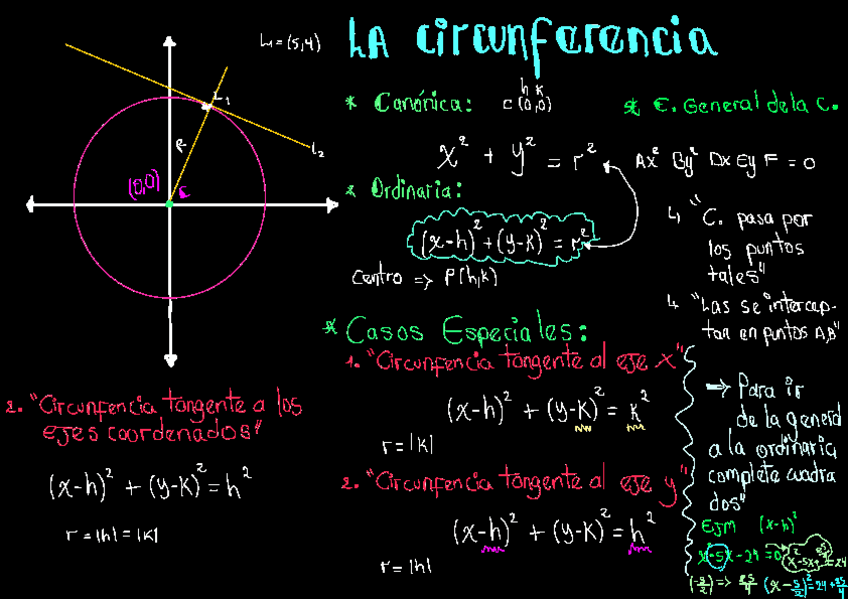 LA circunferencia
L1 = (5,4)
L1
R
L2
(0,0)
C
* Canónica:
h k
C (0,0)
x² + y² = r²
* Ordinaria:
(x-h)² + (y-k)² = r²
Centro => P(h,k)
* E. General de la C.
Ax² By² Dx Ey F = 0
↳ "C. pasa por
los puntos
tales"
↳ "Las se intercep-
tan en puntos A,B"
* Casos Especiales:
1. "Circunfencia tangente al eje x"
(x-h)² + (y-k)² = k²
r = |k|
2. "Circunfencia tangente al eje y"
(x-h)² + (y-k)² = h²
r = |h|
2. "Circunfencia tangente a los
ejes coordenados"
(x-h)² + (y-k)² = h²
r = |h| = |k|
=> Para ir
de la general
a la ordinaria
complete cuadra
dos"
EJM (x-h)²
x²-5x-24 = 0
(-5/2) => 25/4 (x - 5/2)² = 24 + 25/4